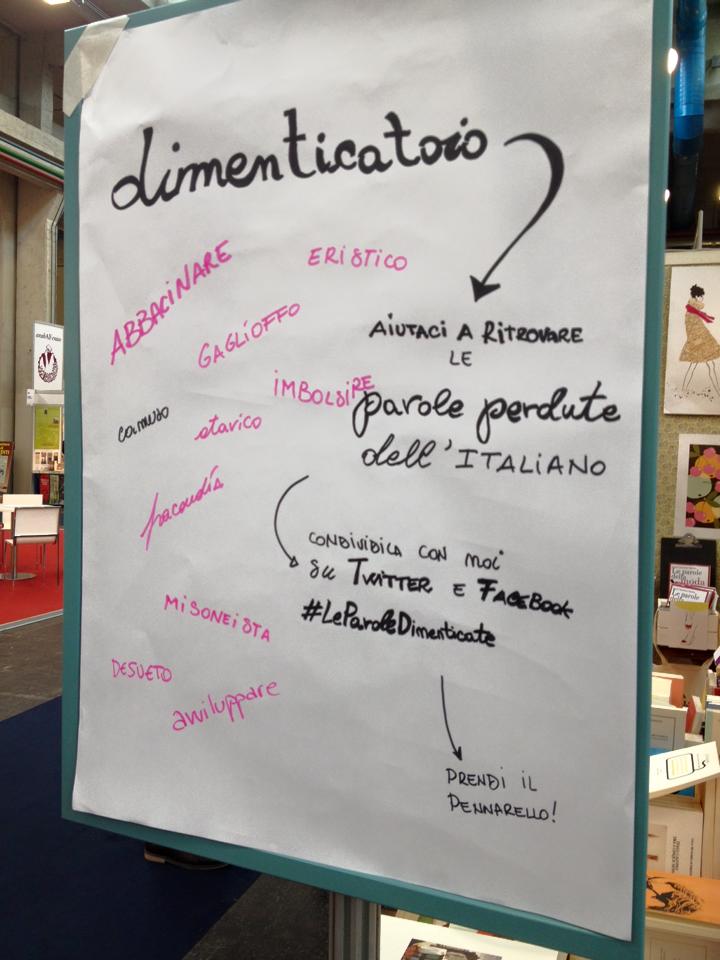 dimenticatoio
ABBACINARE
ERISTICO
GAGLIOFFO
IMBOLSIRE
caruso
atavico
facondia
MISONEISTA
DESUETO
avviluppare
AIUTACI A RITROVARE
LE
parole perdute
dell'ITALIANO
CONDIVIDILA CON NOI
SU TWITTER E FACEBOOK
#LeParoleDimenticate
PRENDI IL
PENNARELLO!
Le parole
della
moda
Le parole